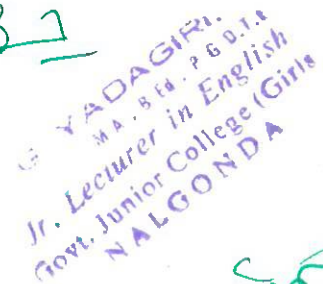 G YADAGIRI.
M A. B Ed. P G D.T.E
Jr. Lecturer in English
Govt. Junior College (Girls
NALGONDA